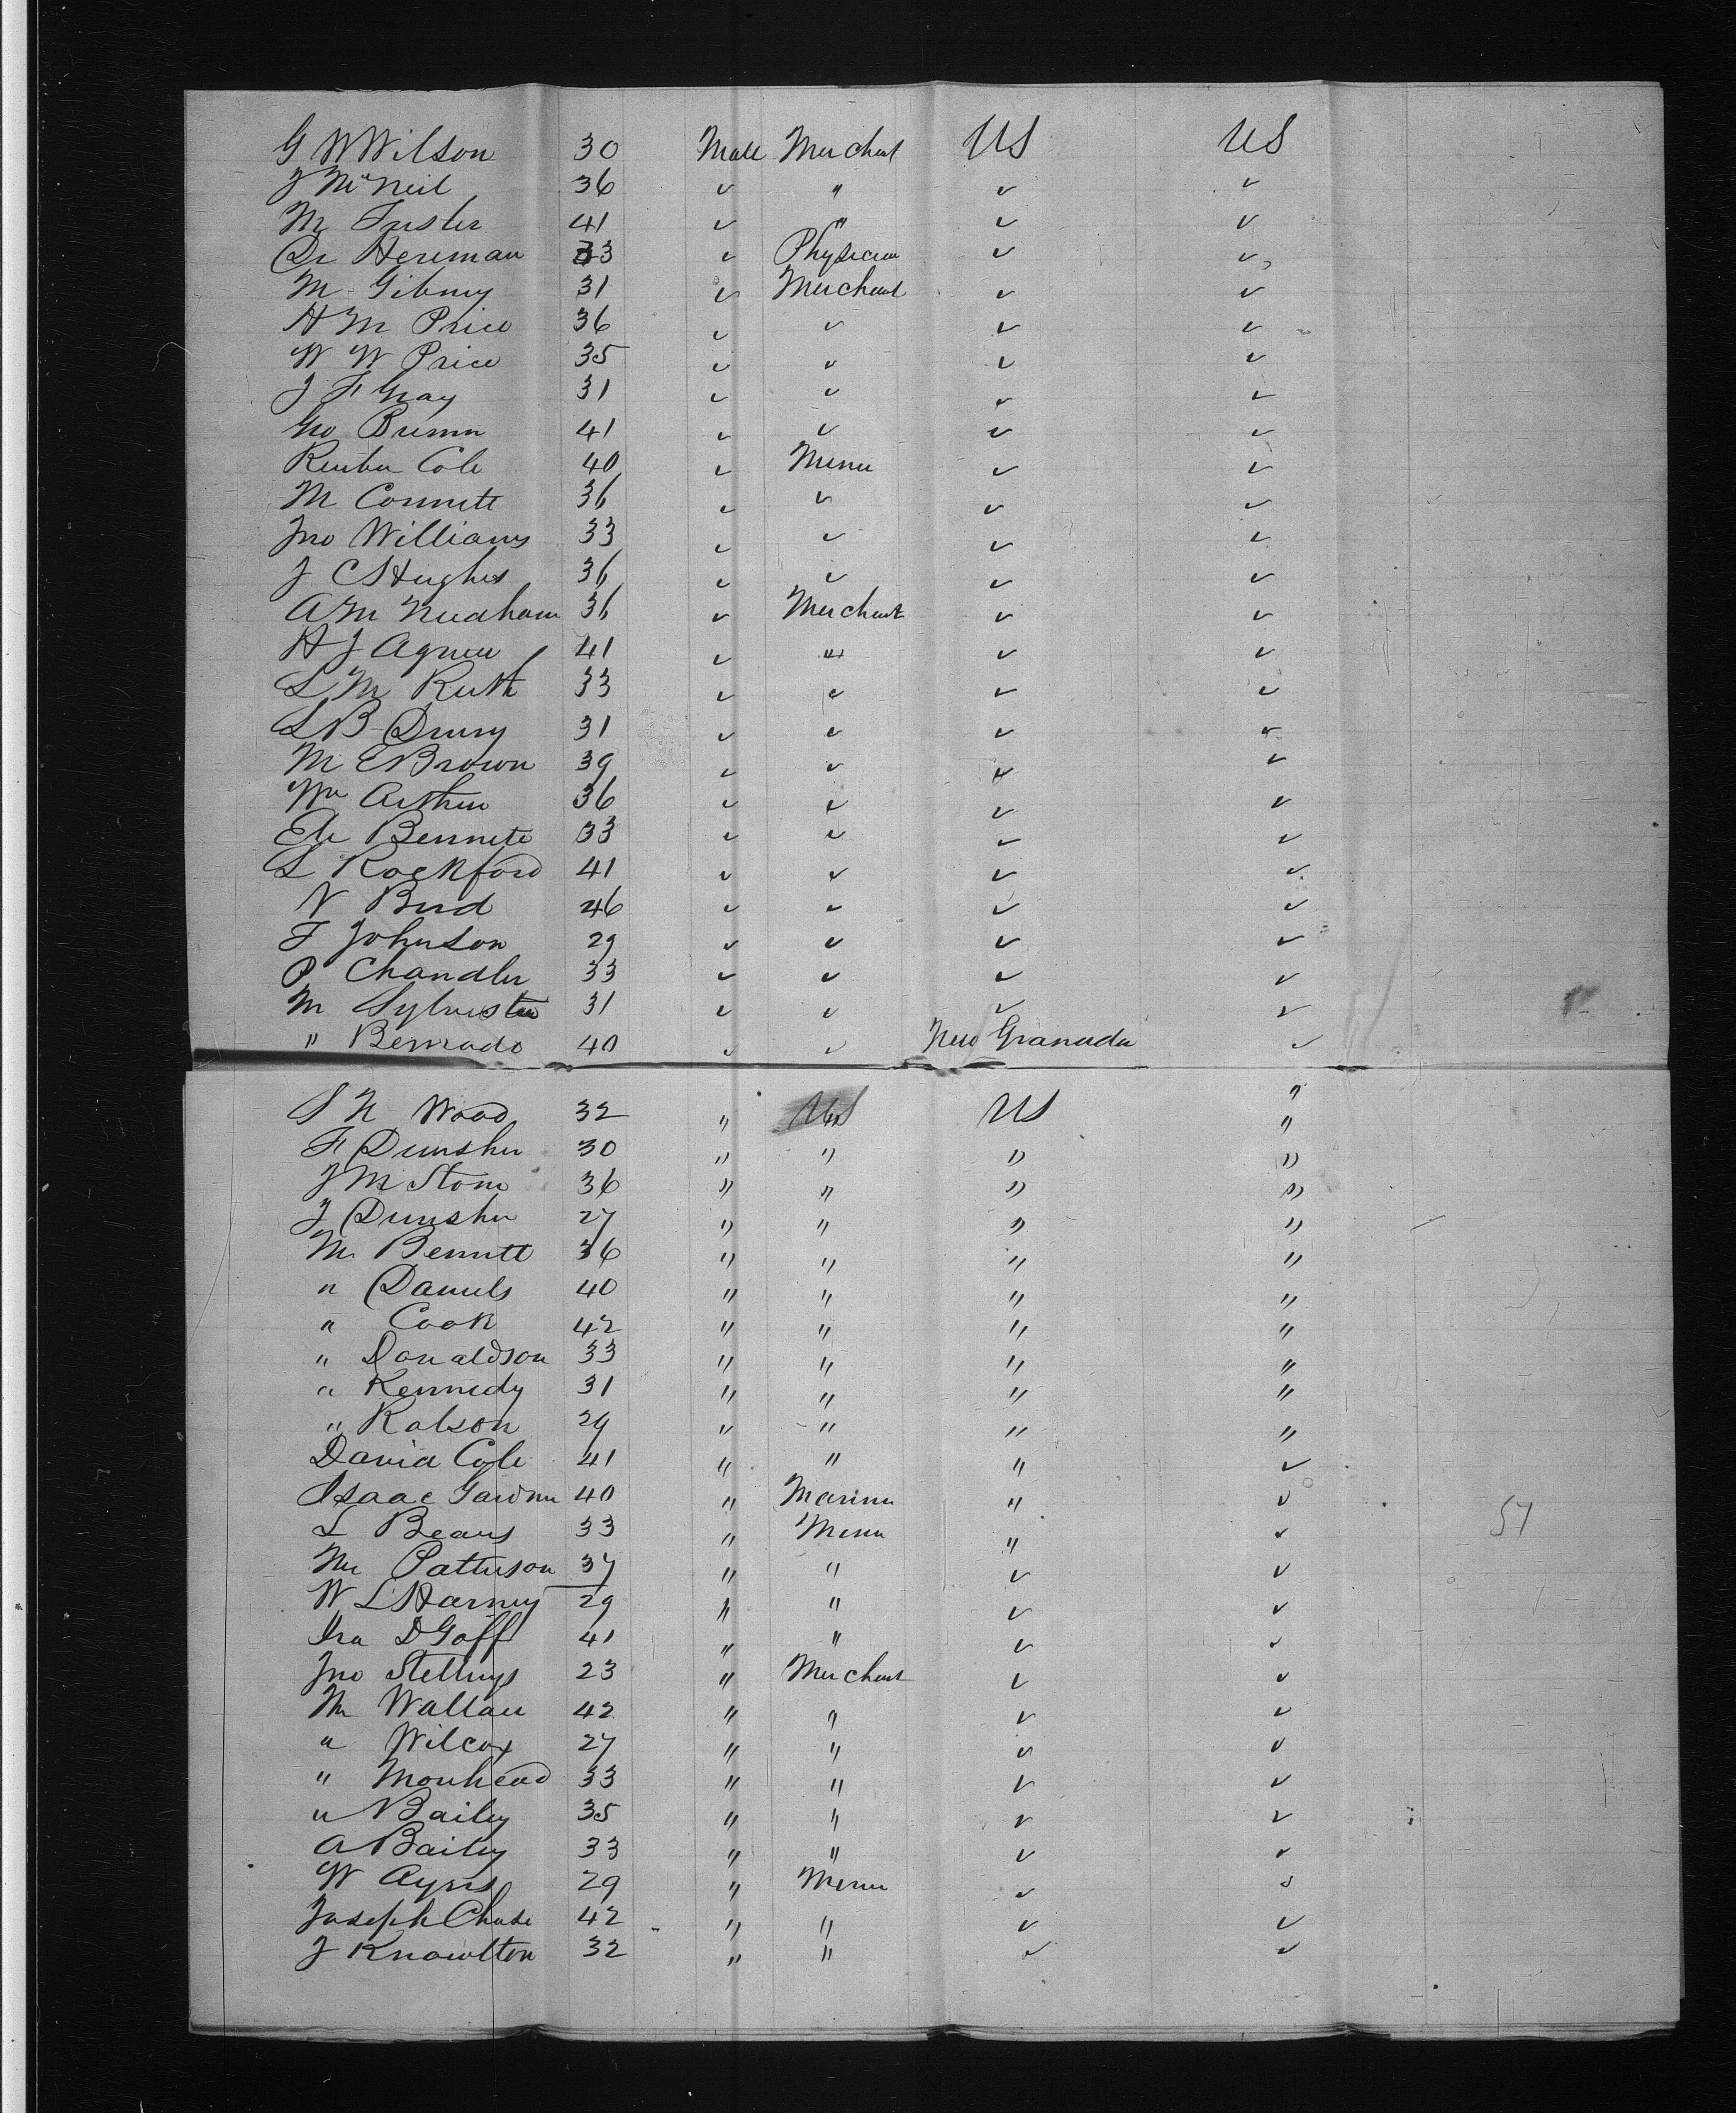 G W Wilson 30 Male Merchant US US
J McNeil 36 " " " "
Mr Foster 41 " " " "
Dr Hereman 33 " Physician " "
Mr Gibney 31 " Merchant " "
H M Price 36 " " " "
W W Price 35 " " " "
J F Gray 31 " " " "
Geo 41 " " " "
Reuben Cole 40 " Miner " "
M 36 " " " "
Jno Williams 33 " " " "
J C Hughes 36 " " " "
A M Needham 36 " Merchant " "
H J Agnew 41 " " " "
L M Ruth 33 " " " "
L B Drury 31 " " " "
M E Brown 39 " " " "
Wm Arthur 36 " " " "
Eli Bennett 33 " " " "
L Rockford 41 " " " "
N Bird 46 " " " "
F Johnson 29 " " " "
P Chandler 33 " " " "
Mr Sylvester 31 " " " "
" Bernado 40 " " New Granada "
S N Wood 32 " US "
F Dunsher 30 " " " "
J M Stone 36 " " " "
J Dunsher 27 " " " "
Mr Bennett 36 " " " "
" Daniels 40 " " " "
" Cook 42 " " " "
" Donaldson 33 " " " "
" Kennedy 31 " " " "
" Robson 29 " " " "
David Cole 41 " " " "
Isaac Gardner 40 " Mariner " "
L Beans 33 " Miner " " 57
Mr Patterson 37 " " " "
W L Harney 29 " " " "
Ira D Goff 41 " " " "
Jno 23 " Merchant " "
Mr Wallace 42 " " " "
" Wilcox 27 " " " "
" Morehead 33 " " " "
" Bailey 35 " " " "
A Bailey 33 " " " "
W Ayres 29 " Miner " "
Joseph Chase 42 " " " "
J Knowlton 32 " " " "